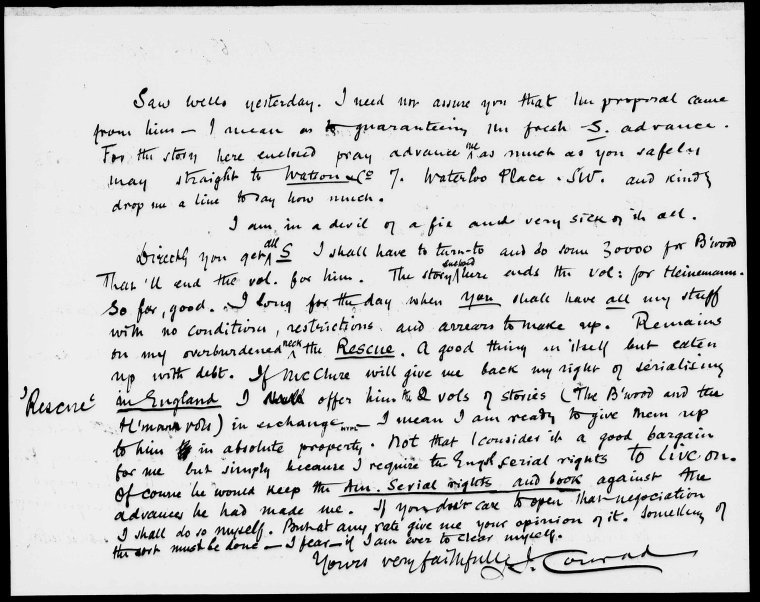 Saw Wells yesterday. I need not assure you that the proposal came
from him — I mean as to guaranteeing the fresh S. advance.
For the story here enclosed pray advance me as much as you safely
may straight to Watson & Co 7. Waterloo Place. SW. and kindly
drop me a line to say how much.
I am in a devil of a fix and very sick of it all.
Directly you get all S I shall have to turn-to and do some 30000 for B'wood
That'll end the vol. for him. The story enclosed here ends the vol: for Heinemann.
So far, good. I long for the day when you shall have all my stuff
with no conditions, restrictions and arrears to make up. Remains
on my overburdened neck the Rescue. A good thing in itself but eaten
up with debt. If McClure will give me back my right of serialising
'Rescue'
in England I shall offer him the 2 vols of stories (The B'wood and the
H'mann vols) in exchange — I mean I am ready to give them up
to him in absolute property. Not that I consider it a good bargain
for me but simply because I require the Engsh serial rights to live on.
Of course he would keep the Am. Serial rights and book against the
advances he had made me. If you don't care to open that negociation
I shall do so myself. But at any rate give me your opinion of it. Something of
the sort must be done — I fear — if I am ever to clear myself.
Yours very faithfully J. Conrad